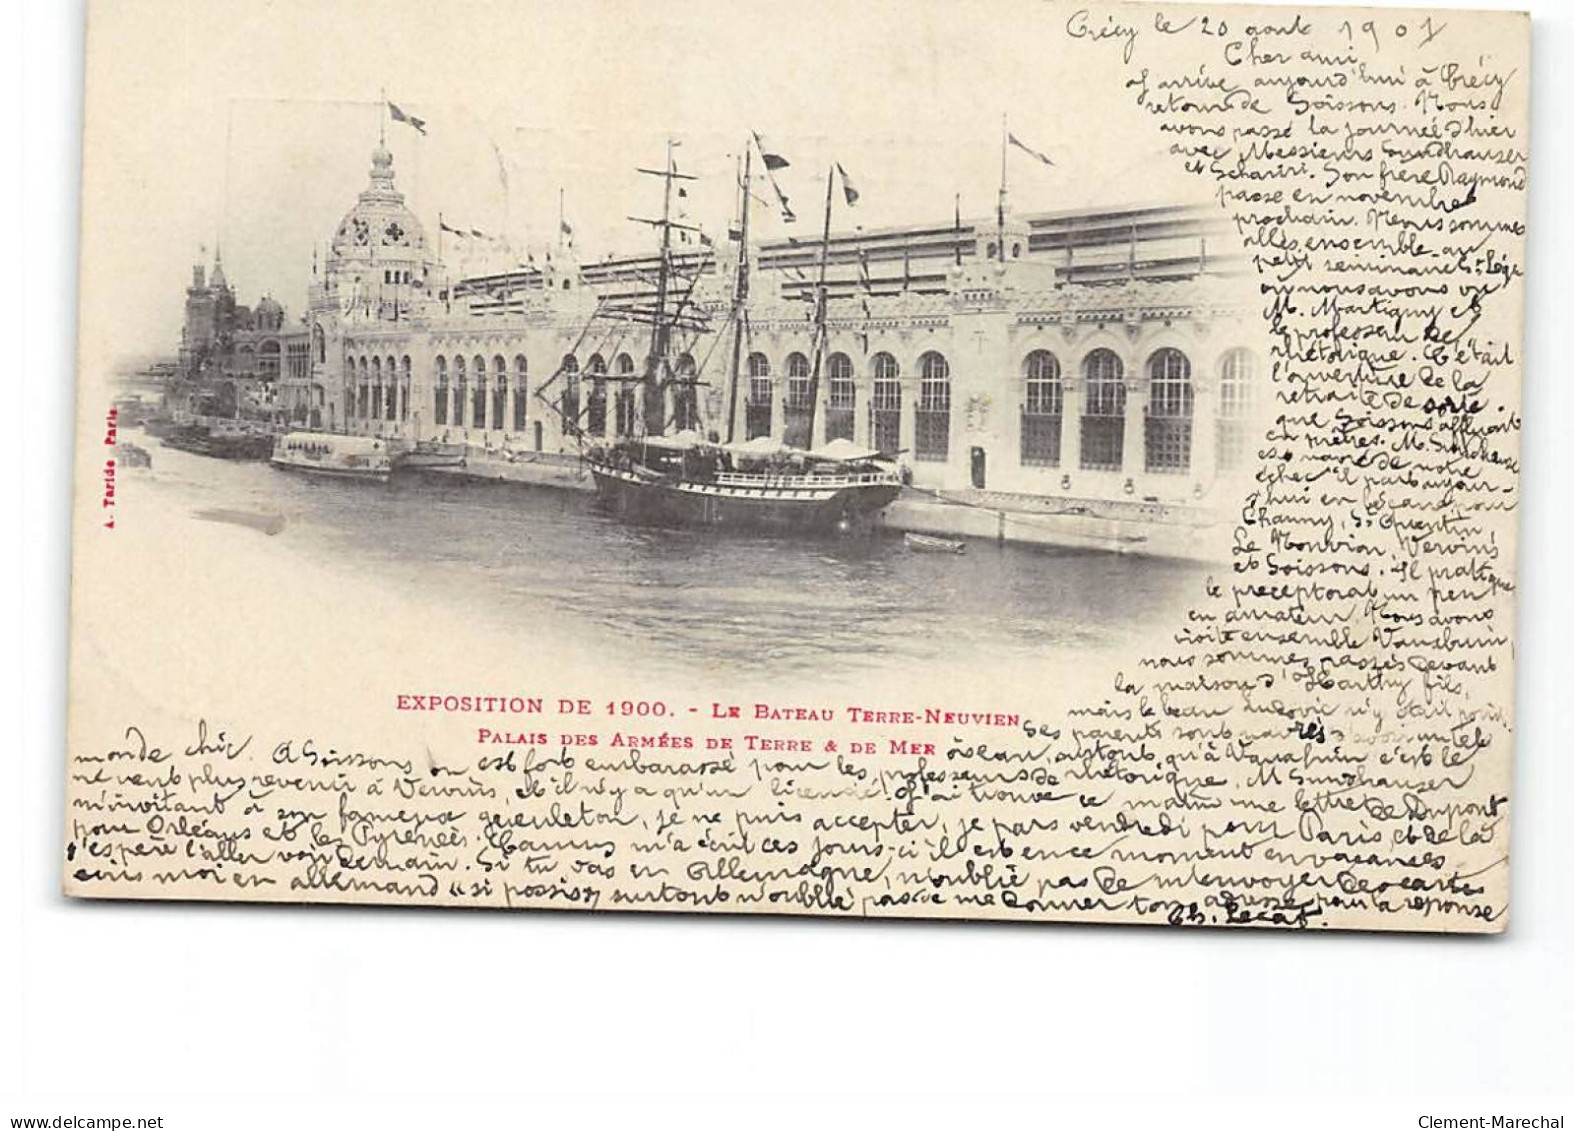 Crécy le 20 août 1901
Cher ami,
J'arrive aujourd'hui à Crécy
retour de Soissons. Nous
avons passé la journée d'hier
avec Messieurs Sundhauser
et Son frère Raymond
passe en novembre
prochain. Nous sommes
allés ensemble au
petit séminaire St Léger
où nous avons vu
M. Martigny et
le professeur de
rhétorique. C'était
l'ouverture de la
retraite de sorte
que Soissons affluait
en prêtres. M. Sundhauser
est navré de notre
échec il part aujour-
d'hui en pour
Chauny, St Quentin
Le Nouvion, Vervins
et Soissons. Il pratique
le préceptorat un peu
en amateur. Nous avons
visité ensemble Vauxbuin,
nous sommes passés devant
la maison d'Harthy fils,
mais le beau Ludovic n'y était point.
Ses parents sont navrés d'avoir un tel
oiseau, surtout qu'à Vauxbuin c'est le
monde chic. A Soissons on est fort embarassé pour les professeurs de rhétorique, M Sundhauser
ne veut plus revenir à Vervins, et il n'y a qu'un licencié. J'ai trouvé ce matin une lettre de Dupont
m'invitant à son fameux gueuleton, je ne puis accepter, je pars vendredi pour Paris, et de là
pour Orléans et les Pyrénées. Camus m'a écrit ces jours-ci il est en ce moment en vacances
j'espère l'aller voir demain. Si tu vas en Allemagne, n'oublie pas de m'envoyer des cartes
écris moi en allemand "si possis", surtout n'oublie pas de me donner ton adresse pour ta réponse
Ch. Lecat.
A. Taride Paris
EXPOSITION DE 1900. - LE BATEAU TERRE-NEUVIEN
PALAIS DES ARMÉES DE TERRE & DE MER
www.delcampe.net
Clement-Marechal